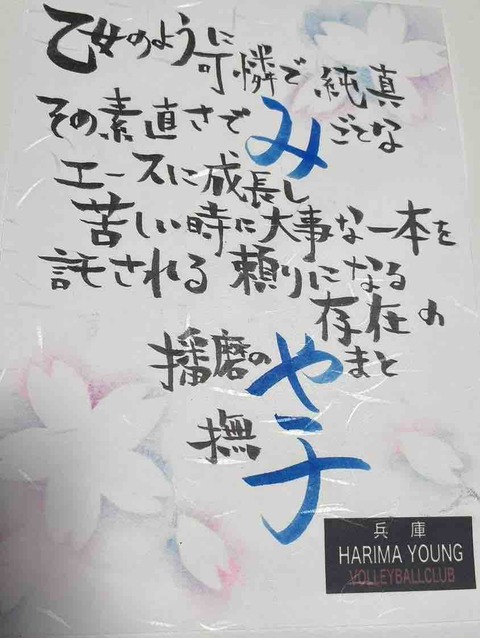 乙女のように可憐で純真
その素直さでみごとな
エースに成長し
苦しい時に大事な一本を
託される頼りになる
存在の
播磨のやまと
撫子
兵庫
HARIMA YOUNG
VOLLEYBALLCLUB